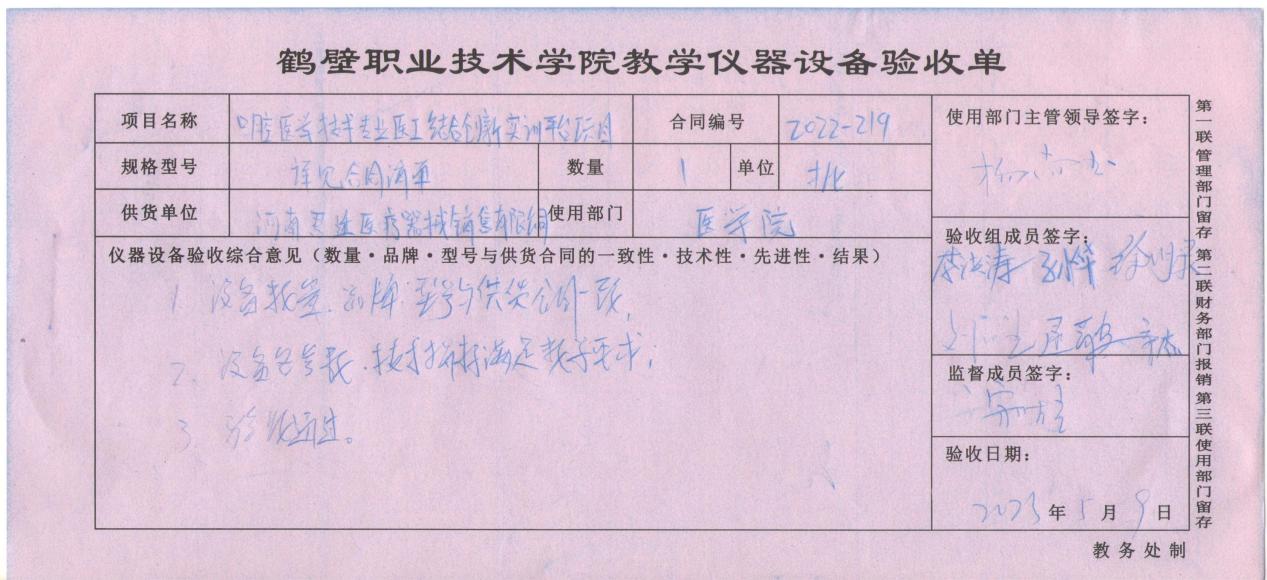 鹤壁职业技术学院教学仪器设备验收单
项目名称 口腔医学技术专业医工结合创新实训平台项目 合同编号 2022-219
规格型号 详见合同清单 数量 1 单位 批
供货单位 河南 医疗器械销售有限公司 使用部门 医学院
仪器设备验收综合意见(数量·品牌·型号与供货合同的一致性·技术性·先进性·结果)
1、设备数量、品牌、型号与供货合同一致;
2、设备 技术指标满足教学要求;
3、验收通过。
使用部门主管领导签字:
验收组成员签字:
监督成员签字:
验收日期:
2023年5月9日
第一联管理部门留存 第二联财务部门报销 第三联使用部门留存
教务处制